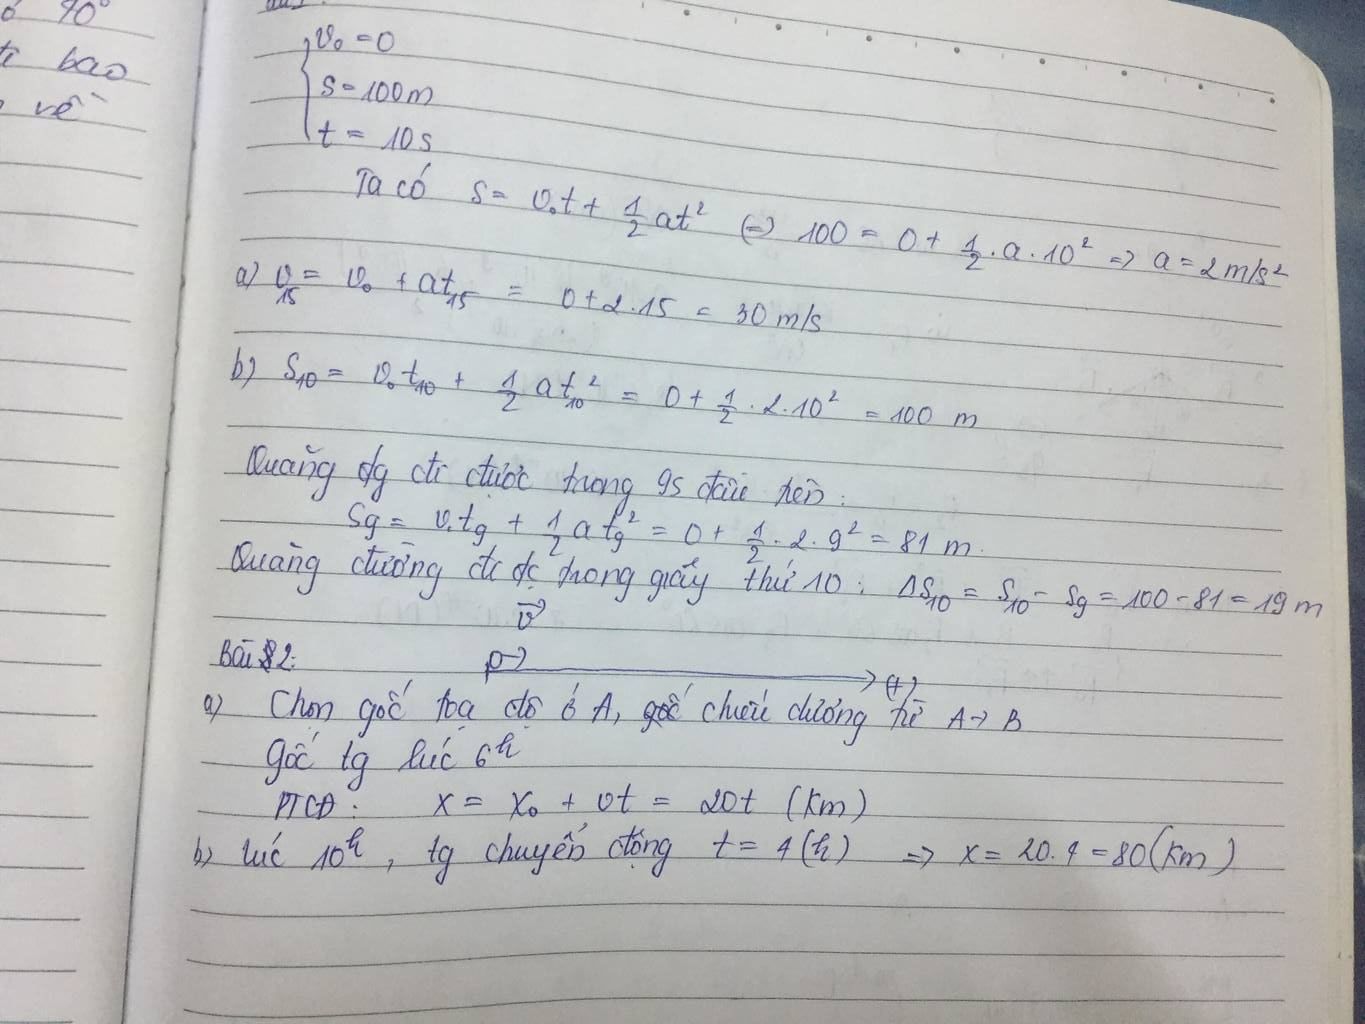 90°
bao
về
v₀ = 0
S = 100m
t = 10s
Ta có S = v₀t + 1/2 at² (=) 100 = 0 + 1/2 . a . 10² => a = 2m/s²
a) v₁₅ = v₀ + at₁₅ = 0 + 2.15 = 30 m/s
b) S₁₀ = v₀t₁₀ + 1/2 at₁₀² = 0 + 1/2 . 2 . 10² = 100 m
Quãng đg đi được trong 9s đầu tiên:
S₉ = v₀t₉ + 1/2 a t₉² = 0 + 1/2 . 2 . 9² = 81 m.
Quãng đường đi đc trong giây thứ 10 : ΔS₁₀ = S₁₀ - S₉ = 100 - 81 = 19 m
v→
Bài 2:
(+)
a) Chọn gốc toạ độ ở A, chiều dương từ A → B
Gốc tg lúc 6h
PTCĐ : x = x₀ + vt = 20t (km)
b) lúc 10h, tg chuyển động t = 4(h) => x = 20.4 = 80(km)